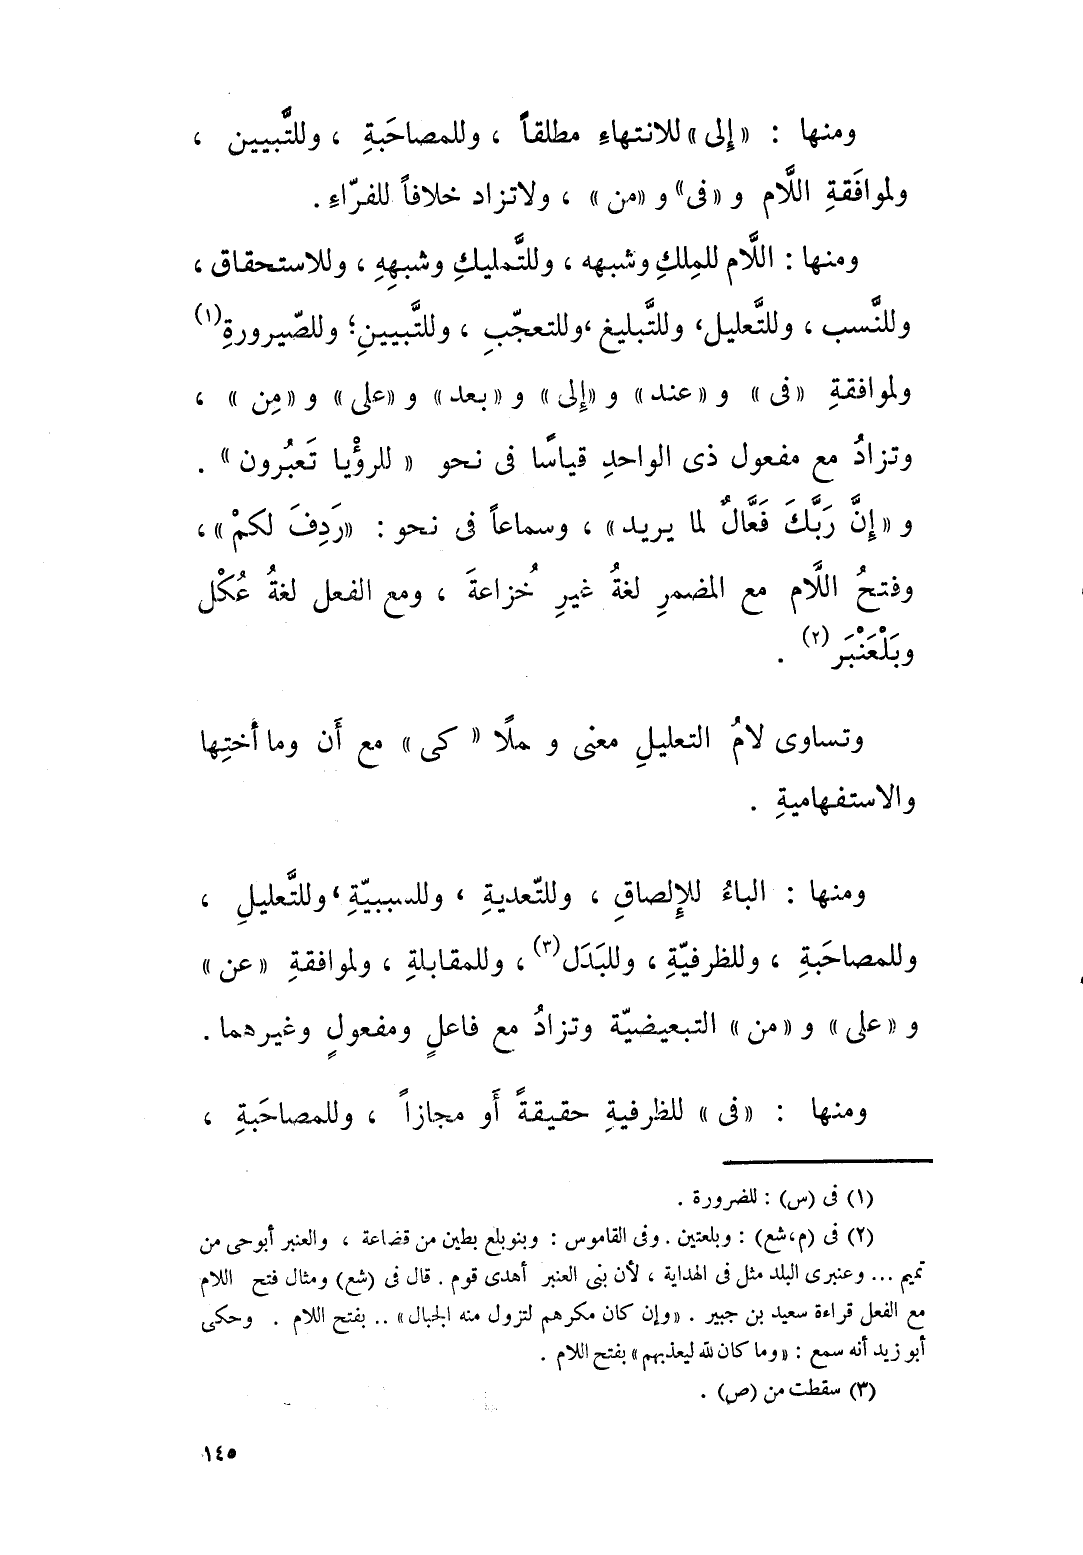 ومنها : «إِلى» للانتهاءِ مطلقاً ، وللمصاحَبةِ ، وللتَّبيين ،
ولموافَقةِ اللَّام و «فى» و «من» ، ولاتزاد خلافاً للفرّاءِ .
ومنها : اللَّام للمِلكِ وشبهه ، وللتَّمليكِ وشبهِهِ ، وللاستحقاق ،
وللنَّسب ، وللتَّعليل، وللتَّبليغ ،وللتعجّبِ ، وللتَّبيينِ؛ وللصّيرورةِ(١)
ولموافقةِ «فى» و «عند» و «إِلى» و «بعد» و «على» و «مِن» ،
وتزادُ مع مفعول ذى الواحدِ قياسًا فى نحو « للرؤْيا تَعبُرون» .
و «إِنَّ رَبَّكَ فَعَّالٌ لما يريد» ، وسماعاً فى نحو : «رَدِفَ لكمْ» ،
وفتحُ اللَّام مع المضمرِ لغةُ غيرِ خُزاعةَ ، ومع الفعل لغةُ عُكْل
وبَلْعَنْبَر(٢) .
وتساوى لامُ التعليلِ معنى و عملًا « كى» مع أَن وما أُختِها
والاستفهاميةِ .
ومنها : الباءُ للإِلصاقِ ، وللتّعديةِ ، وللسببيّةِ ، وللتَّعليلِ ،
وللمصاحَبةِ ، وللظرفيّةِ ، وللبَدَل(٣) ، وللمقابلةِ ، ولموافقةِ «عن»
و «على» و «من» التبعيضيّة وتزادُ مع فاعلٍ ومفعولٍ وغيرهما .
ومنها : «فى» للظرفيةِ حقيقةً أَو مجازاً ، وللمصاحَبةِ ،
(١) فى (س) : للضرورة .
(٢) فى (م،شع) : وبلعتين . وفى القاموس : وبنوبلع بطين من قضاعة ، والعنبر أبوحى من
تميم ... وعنبرى البلد مثل فى الهداية ، لأن بنى العنبر أهدى قوم . قال فى (شع) ومثال فتح اللام
مع الفعل قراءة سعيد بن جبير . «وإن كان مكرهم لتزول منه الجبال» .. بفتح اللام . وحكى
أبو زيد أنه سمع : «وما كان لله ليعذبهم» بفتح اللام .
(٣) سقطت من (ص) .
١٤٥